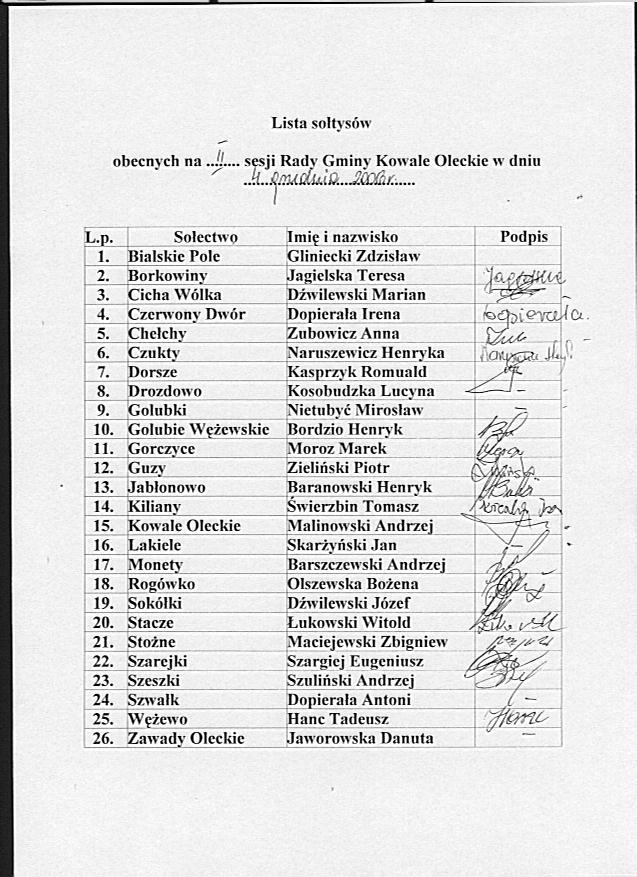 Lista sołtysów
obecnych na ....II.... sesji Rady Gminy Kowale Oleckie w dniu
4 grudnia 2006r.
L.p. Sołectwo Imię i nazwisko Podpis
1. Bialskie Pole Gliniecki Zdzisław
2. Borkowiny Jagielska Teresa
3. Cicha Wólka Dźwilewski Marian
4. Czerwony Dwór Dopierała Irena Dopierała.
5. Chełchy Zubowicz Anna
6. Czukty Naruszewicz Henryka
7. Dorsze Kasprzyk Romuald
8. Drozdowo Kosobudzka Lucyna -
9. Golubki Nietubyć Mirosław -
10. Golubie Wężewskie Bordzio Henryk
11. Gorczyce Moroz Marek
12. Guzy Zieliński Piotr
13. Jabłonowo Baranowski Henryk
14. Kiliany Świerzbin Tomasz
15. Kowale Oleckie Malinowski Andrzej
16. Lakiele Skarżyński Jan -
17. Monety Barszczewski Andrzej
18. Rogówko Olszewska Bożena
19. Sokółki Dźwilewski Józef
20. Stacze Łukowski Witold
21. Stożne Maciejewski Zbigniew
22. Szarejki Szargiej Eugeniusz
23. Szeszki Szuliński Andrzej
24. Szwałk Dopierała Antoni -
25. Wężewo Hanc Tadeusz Hanc
26. Zawady Oleckie Jaworowska Danuta -